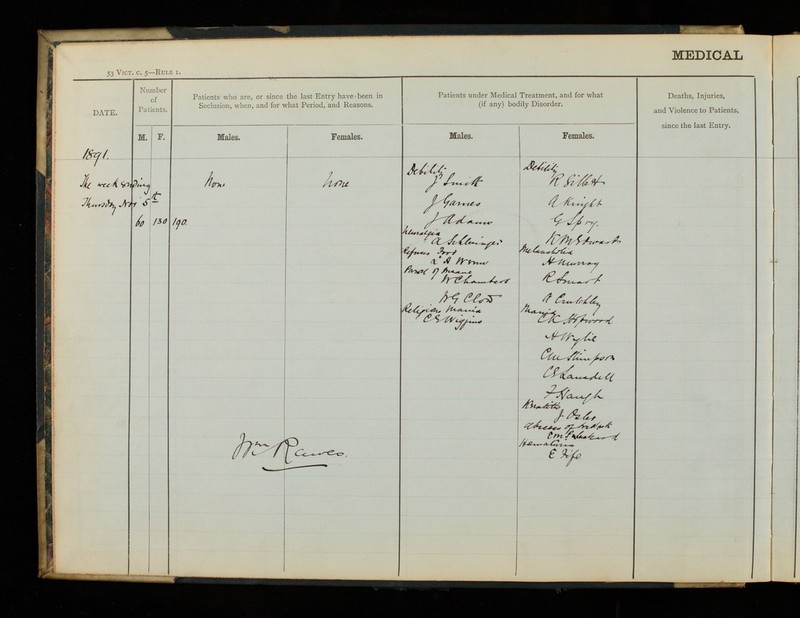 MEDICAL
53 VICT. C. 5—RULE 1.
DATE.
Number
of
Patients.
M. F.
Patients who are, or since the last Entry have been in
Seclusion, when, and for what Period, and Reasons.
Males. Females.
Patients under Medical Treatment, and for what
(if any) bodily Disorder.
Males. Females.
Deaths, Injuries,
and Violence to Patients,
since the last Entry.
1891.
The week ending
Thursday Nov 5th
60 130 190.
None
None
Debility
J Smith
J Games
J Adams
Neuralgia
A Schlesinger
Refuses Food
Paral of Insane
W Chambers
W G Clow
Religious Mania
C E Wiggins
Debility
R Gillett
A Knight
G Spry.
Melancholia
A Murray
R Smart
A Crutchley
Mania
C K Hopwood
A Wylie
C M Thimpson
C E Lansdell
F Haugh
J Osler
Abscess of
Hematuria
E Fife
Wm Rawes.